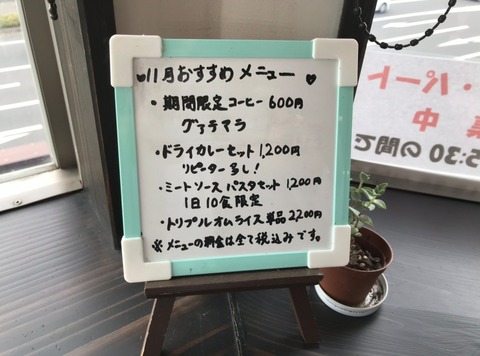 ♥11月おすすめメニュー♥
・期間限定コーヒー 600円
グァテマラ
・ドライカレーセット 1,200円
リピーター多し!
・ミートソースパスタセット 1,200円
1日10食限定
・トリプルオムライス単品 2,200円
※メニューの料金は全て税込みです。
・パート
集中
5:30の間で